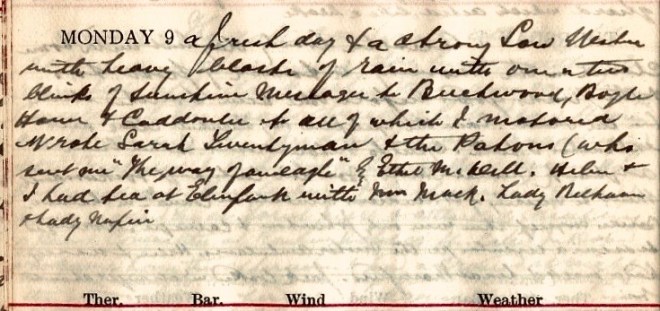 MONDAY 9 a fresh day & a strong Sou Wester
with heavy blasts of rain with one or two
blinks of sunshine Messages to Beechwood, Bogle
House & to all of which I motored
Wrote Sarah Twentyman & the Patons (who
sent me "The way of an eagle" by Ethel M. Dell. Helen &
I had tea at Elmpark with Mrs Mack. Lady
& Lady Napier
Ther. Bar. Wind Weather